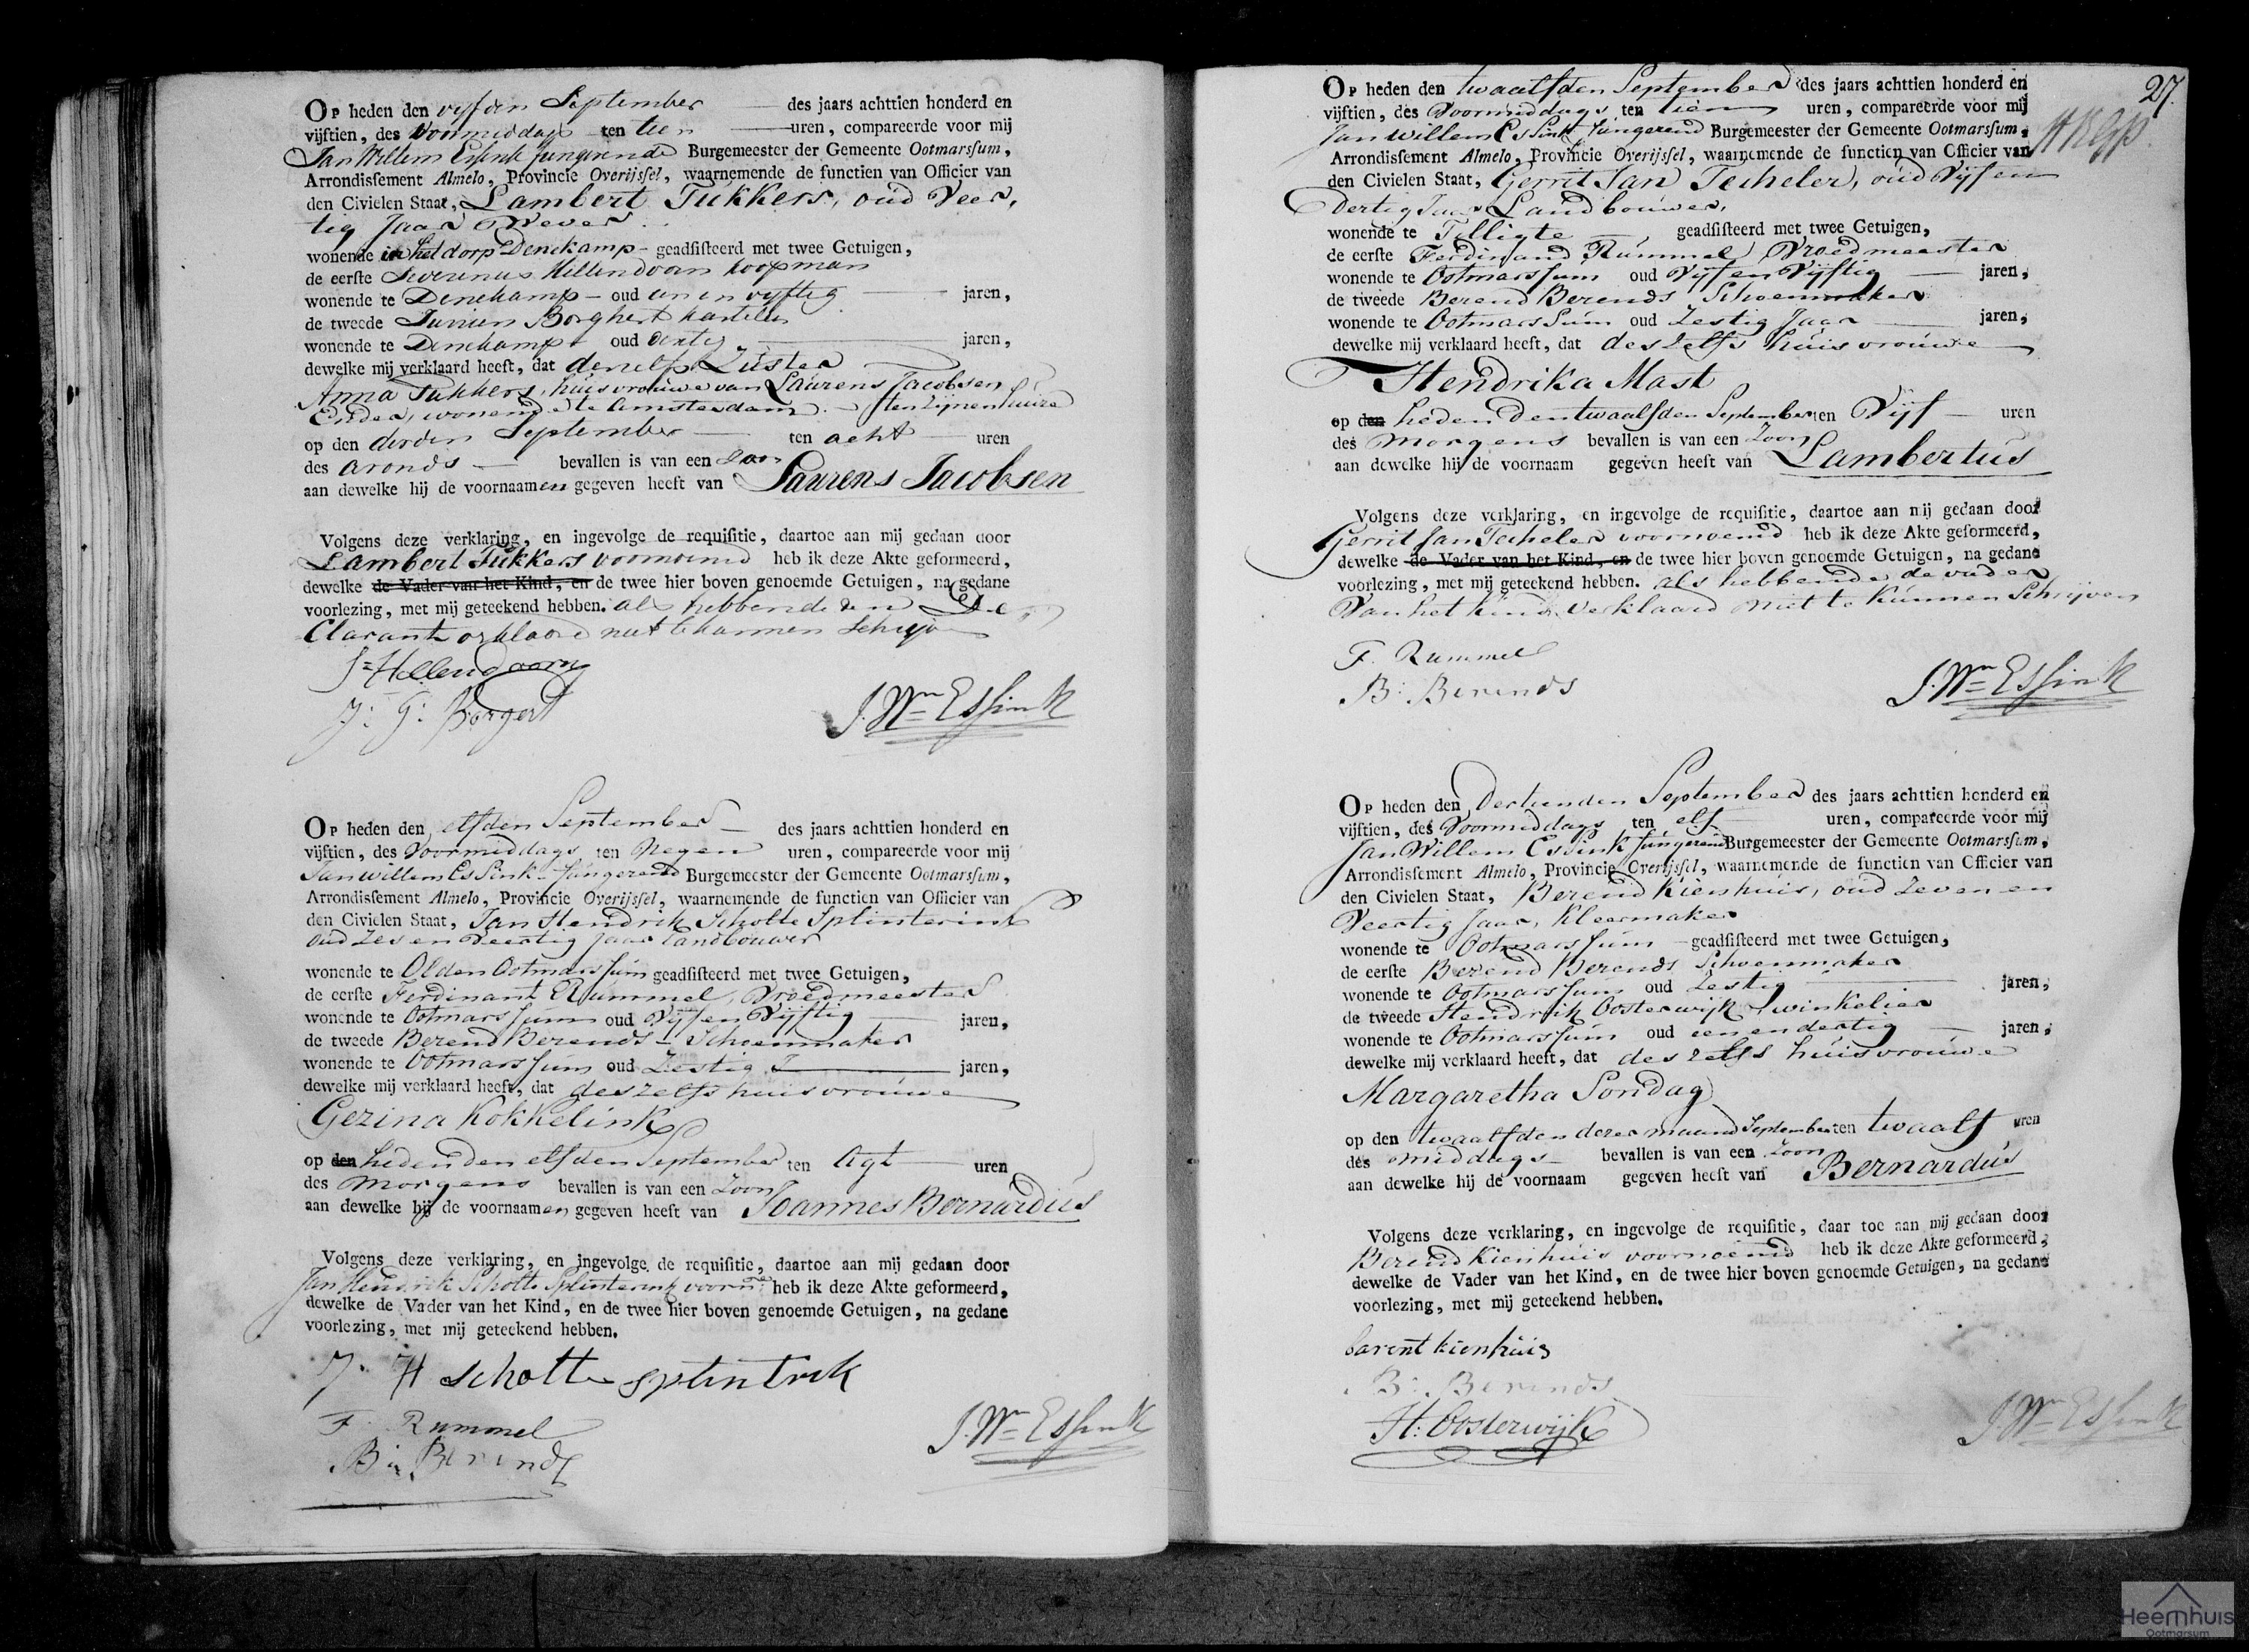 Op heden den vyfden September des jaars achttien honderd en
vijftien, des Voormiddags ten tien uren, compareerde voor mij
Jan Willem Essink fungerende Burgemeester der Gemeente Ootmarsfum,
Arrondisfement Almelo, Provincie Overijsfel, waarnemende de functien van Officier van
den Civielen Staat, Lambert Tukkers, oud Veer,
tig Jaar Wever
wonende in het dorp Denekamp - geadsisteerd met twee Getuigen,
de eerste Severenus Hellendoorn koopman
wonende te Denekamp - oud een en vyftig jaren,
de tweede Borghert
wonende te Denekamp oud dertig jaren,
dewelke mij verklaard heeft, dat denzelfs Zuster
Anna Tukkers, huisvrouwe van Laurens Jacobsen
wonende te Amsterdam ten zijnen huize
op den derden September ten acht uren
des avonds bevallen is van een Zoon
aan dewelke hij de voornaamen gegeven heeft van Laurens Jacobsen
Volgens deze verklaring, en ingevolge de requisitie, daartoe aan mij gedaan door
Lambert Tukkers voornoemd heb ik deze Akte geformeerd,
dewelke de Vader van het Kind, en de twee hier boven genoemde Getuigen, na gedane
voorlezing, met mij geteekend hebben. als hebbende den De
Clarant verklaard niet te kunnen Schryven
S. Hellendoorn
J. G. Borgert
J. Wm Essink
Op heden den elfden September des jaars achttien honderd en
vijftien, des Voormiddags ten Negen uren, compareerde voor mij
Jan Willem Essink fungerend Burgemeester der Gemeente Ootmarsfum,
Arrondisfement Almelo, Provincie Overijsfel, waarnemende de functien van Officier van
den Civielen Staat, Jan Hendrik Scholte Splinterink
oud Zes en Veertig Jaar Landbouwer
wonende te Olden Ootmarssum geadsisteerd met twee Getuigen,
de eerste Ferdinant Rummel, Vroedmeester
wonende te Ootmarssum oud Vijf en Vijftig jaren,
de tweede Berend Berends - Schoenmaker
wonende te Ootmarssum oud Zestig J jaren,
dewelke mij verklaard heeft, dat deszelfs huisvrouwe
Gezina Kokkelink
op den heden den elfden September ten Agt uren
des morgens bevallen is van een Zoon
aan dewelke hij de voornaamen gegeven heeft van Joannes Bernardus
Volgens deze verklaring, en ingevolge de requisitie, daartoe aan mij gedaan door
Jan Hendrik Scholte Splinterink voornd heb ik deze Akte geformeerd,
dewelke de Vader van het Kind, en de twee hier boven genoemde Getuigen, na gedane
voorlezing, met mij geteekend hebben.
J. H scholte splintrik
F. Rummel
B: Berends
J. Wm Essink
27.
Op heden den twaalfden September des jaars achttien honderd en
vijftien, des Voormiddags ten tien uren, compareerde voor mij
Jan Willem Essink fungerend Burgemeester der Gemeente Ootmarsfum,
Arrondisfement Almelo, Provincie Overijsfel, waarnemende de functien van Officier van
den Civielen Staat, Gerrit Jan Techeler, oud Vijf en
Dertig Jaar Landbouwer,
wonende te Tilligte geadsisteerd met twee Getuigen,
de eerste Ferdinand Rummel Vroedmeester
wonende te Ootmarssum oud Vijf en Vijftig jaren,
de tweede Berend Berends Schoenmaker
wonende te Ootmarssum oud Zestig Jaar jaren,
dewelke mij verklaard heeft, dat deszelfs huisvrouwe
Hendrika Mast
op den heden den twaalfden September ten Vijf uren
des morgens bevallen is van een Zoon
aan dewelke hij de voornaam gegeven heeft van Lambertus
Volgens deze verklaring, en ingevolge de requisitie, daartoe aan mij gedaan door
Gerrit Jan Techeler voornoemd heb ik deze Akte geformeerd,
dewelke de Vader van het Kind, en de twee hier boven genoemde Getuigen, na gedane
voorlezing, met mij geteekend hebben. als hebbende de vader
van het kind verklaard niet te kunnen Schrijven
F. Rummel
B: Berends
J. Wm Essink
Op heden den Dertienden September des jaars achttien honderd en
vijftien, des Voormiddags ten elf uren, compareerde voor mij
Jan Willem Essink fungerend Burgemeester der Gemeente Ootmarsfum,
Arrondisfement Almelo, Provincie Overijsfel, waarnemende de functien van Officier van
den Civielen Staat, Berend Kienhuis, oud Zeven en
Veertig Jaar, Kleermaker
wonende te Ootmarssum geadsisteerd met twee Getuigen,
de eerste Berend Berends Schoenmaker
wonende te Ootmarssum oud Zestig jaren,
de tweede Hendrik Oosterwijk winkelier
wonende te Ootmarssum oud een en dertig jaren,
dewelke mij verklaard heeft, dat deszelfs huisvrouwe
Margaretha Sondag
op den twaalfden dezer maand September ten twaalf uren
des middags bevallen is van een Zoon
aan dewelke hij de voornaam gegeven heeft van Bernardus
Volgens deze verklaring, en ingevolge de requisitie, daar toe aan mij gedaan door
Berend Kienhuis voornoemd heb ik deze Akte geformeerd,
dewelke de Vader van het Kind, en de twee hier boven genoemde Getuigen, na gedane
voorlezing, met mij geteekend hebben.
barent kienhuis
B: Berends
H: Oosterwijk
J. Wm Essink
Heemhuis
Ootmarsum